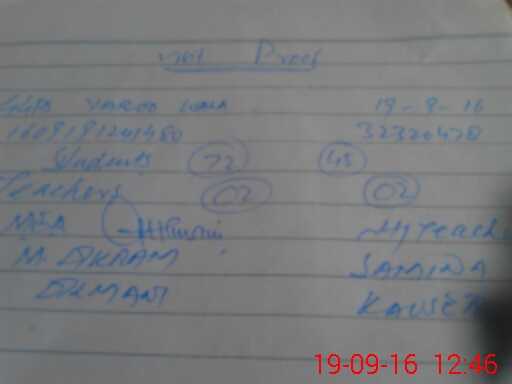 visit Proof
GGPS YAROO WALA 19-9-16
1609191241480 32320420
Students 72 45
Teachers 02 02
MEA H/Teach
M. AKRAM SAMINA
KAUSER
19-09-16 12:46